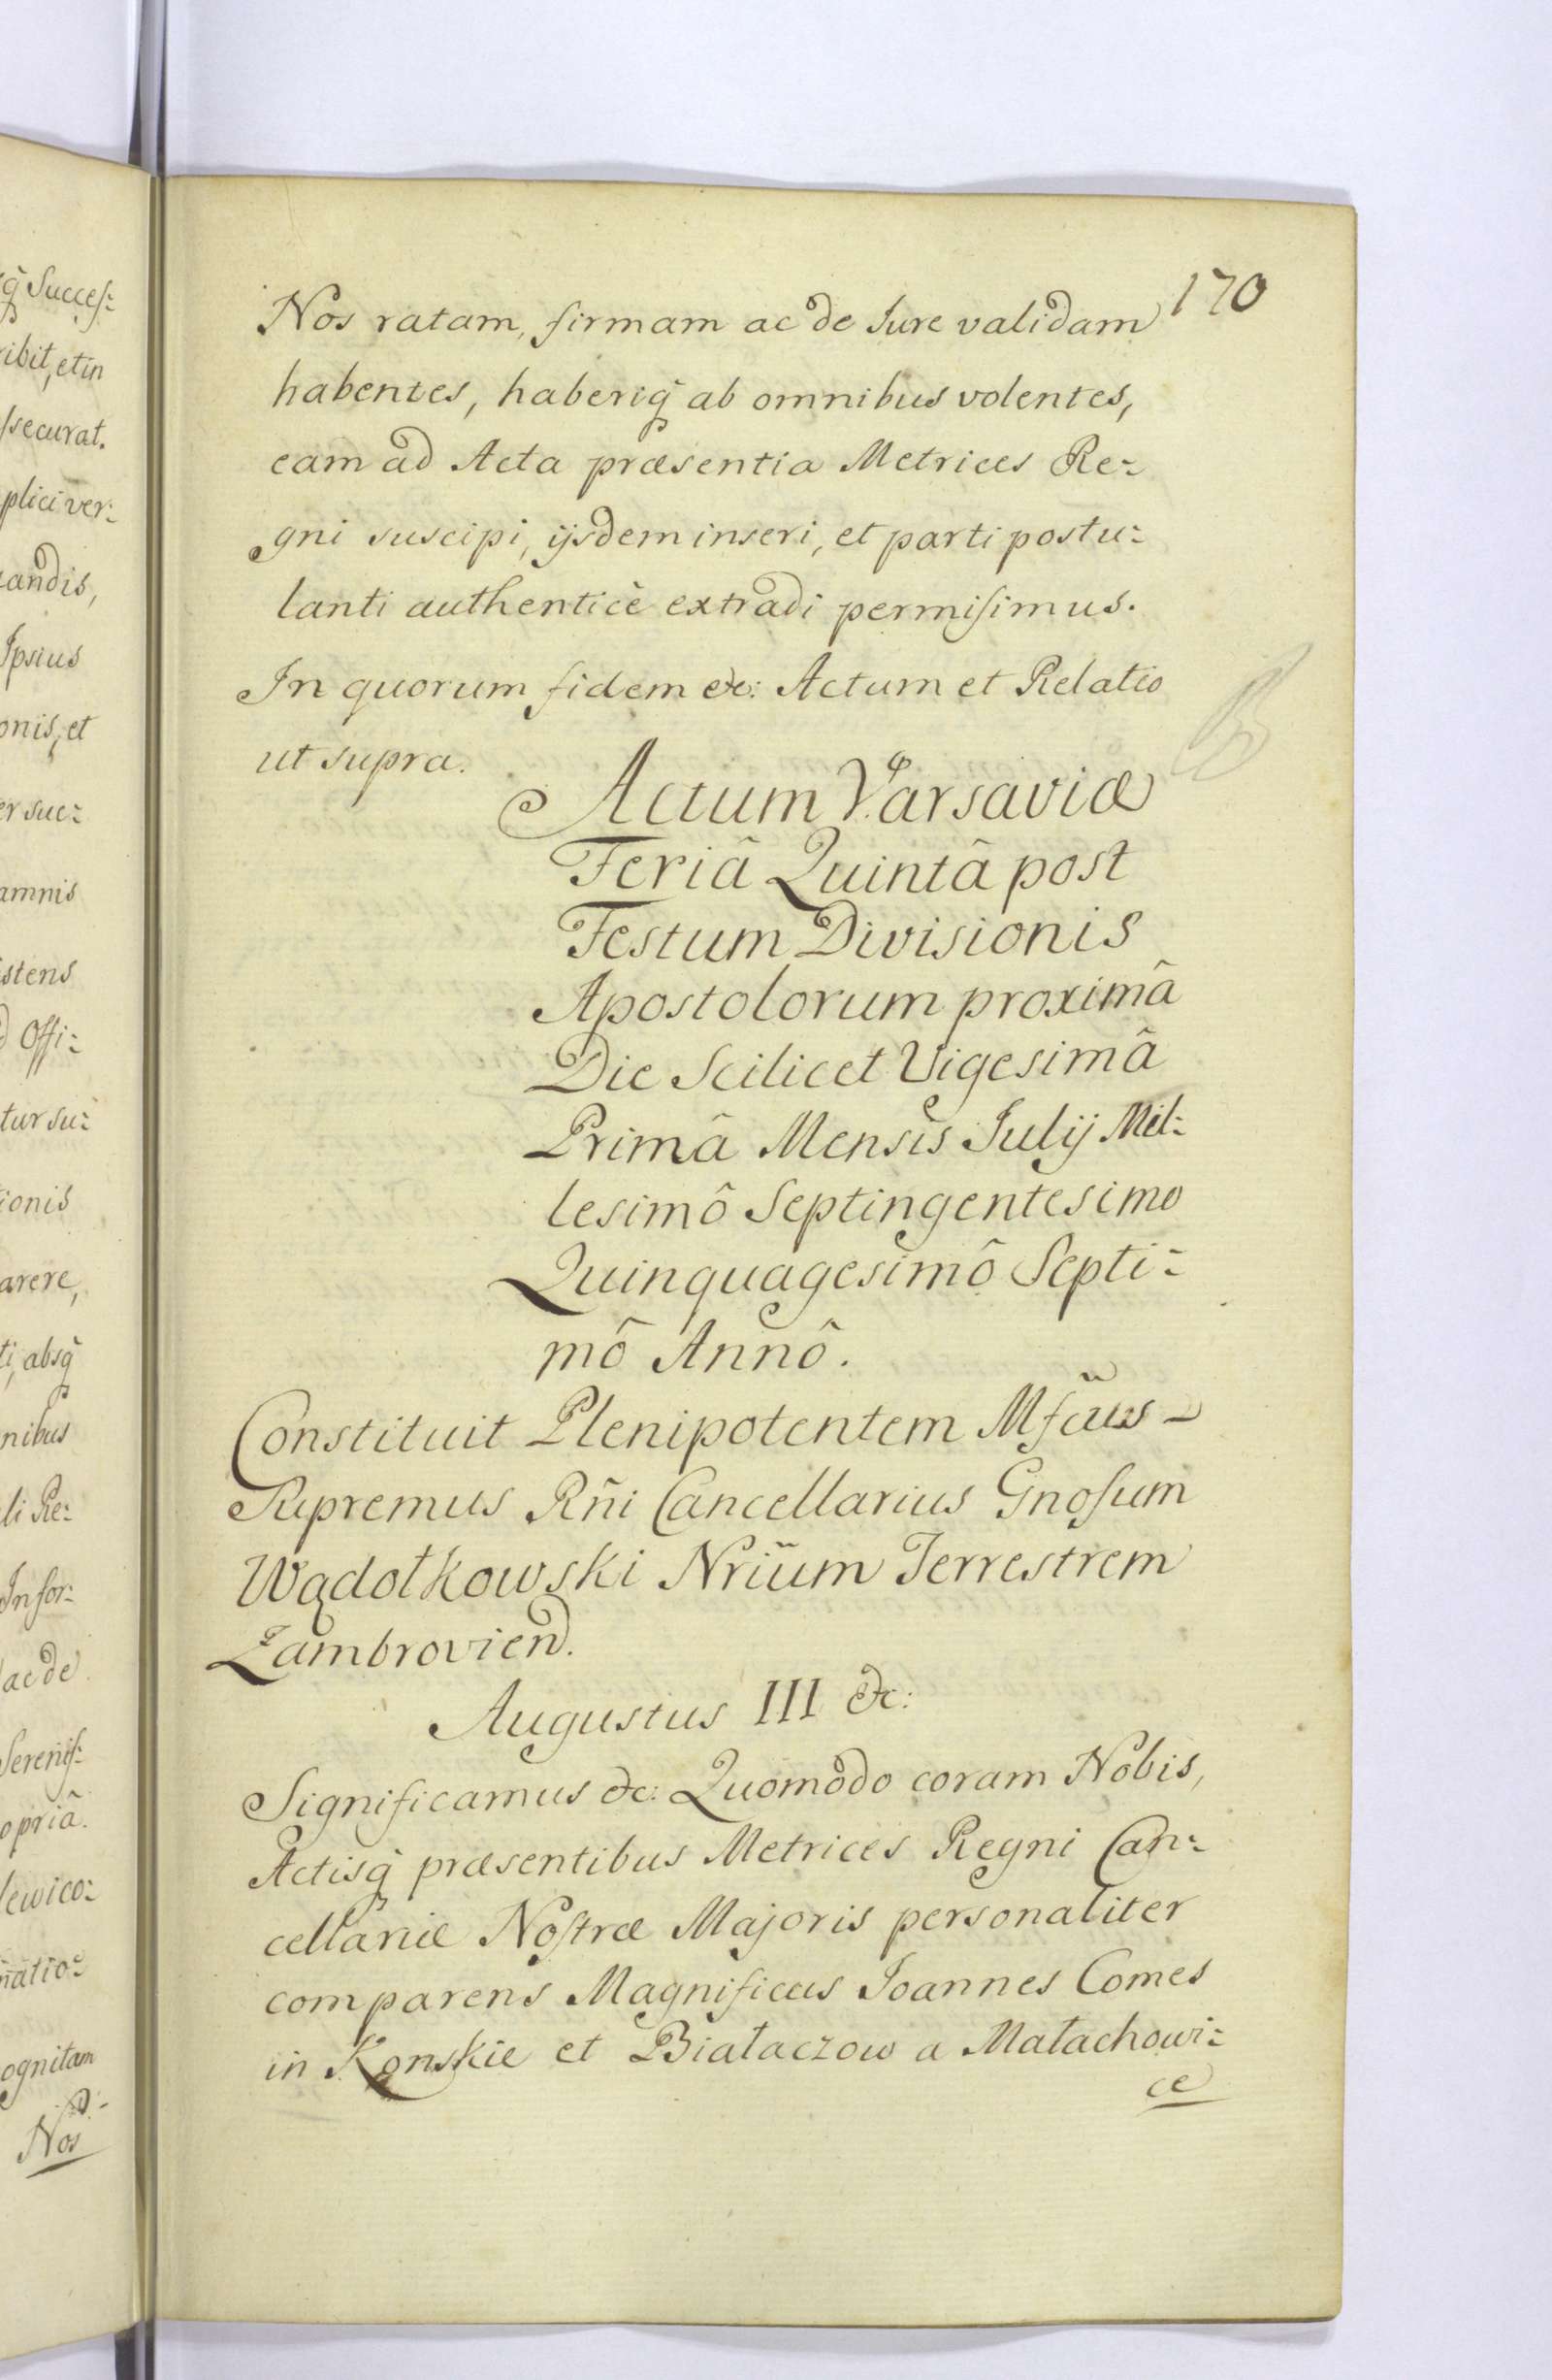 170
Nos ratam, firmam ac de Jure validam
habentes, haberiq̃ ab omnibus volentes,
eam ad Acta præsentia Metrices Re-
gni suscipi, ijsdem inseri, et parti postu-
lanti authenticè extradi permisimus.
In quorum fidem &c: Actum et Relatio
ut supra.
Actum Varsaviæ
Feriâ Quintâ post
Festum Divisionis
Apostolorum proximâ
Die Scilicet Vigesimâ
Primâ Mensis Julij Mil-
lesimô Septingentesimo
Quinquagesimô Septi-
mô Annô.
Constituit Plenipotentem Mfcus
Supremus Rñi Cancellarius Gnosum
Wądołkowski Nrium Terrestrem
Zambrovien.
Augustus III &c:
Significamus &c: Quomodo coram Nobis,
Actisq̃ præsentibus Metrices Regni Can-
cellariæ Nostræ Majoris personaliter
comparens Magnificus Joannes Comes
in Konskie et Białaczow a Małachowi-
ce
q̃ Succes-
ribit, et in
ssecurat.
plici ver-
andis,
Ipsius
onis, et
er suc-
amnis
istens
d Offi-
tur su-
ionis
arere,
ti, absq̃
nibus
li Re-
Infor-
ac de
Serenis-
opriâ.
lewico-
natio-
ognitam
Nos